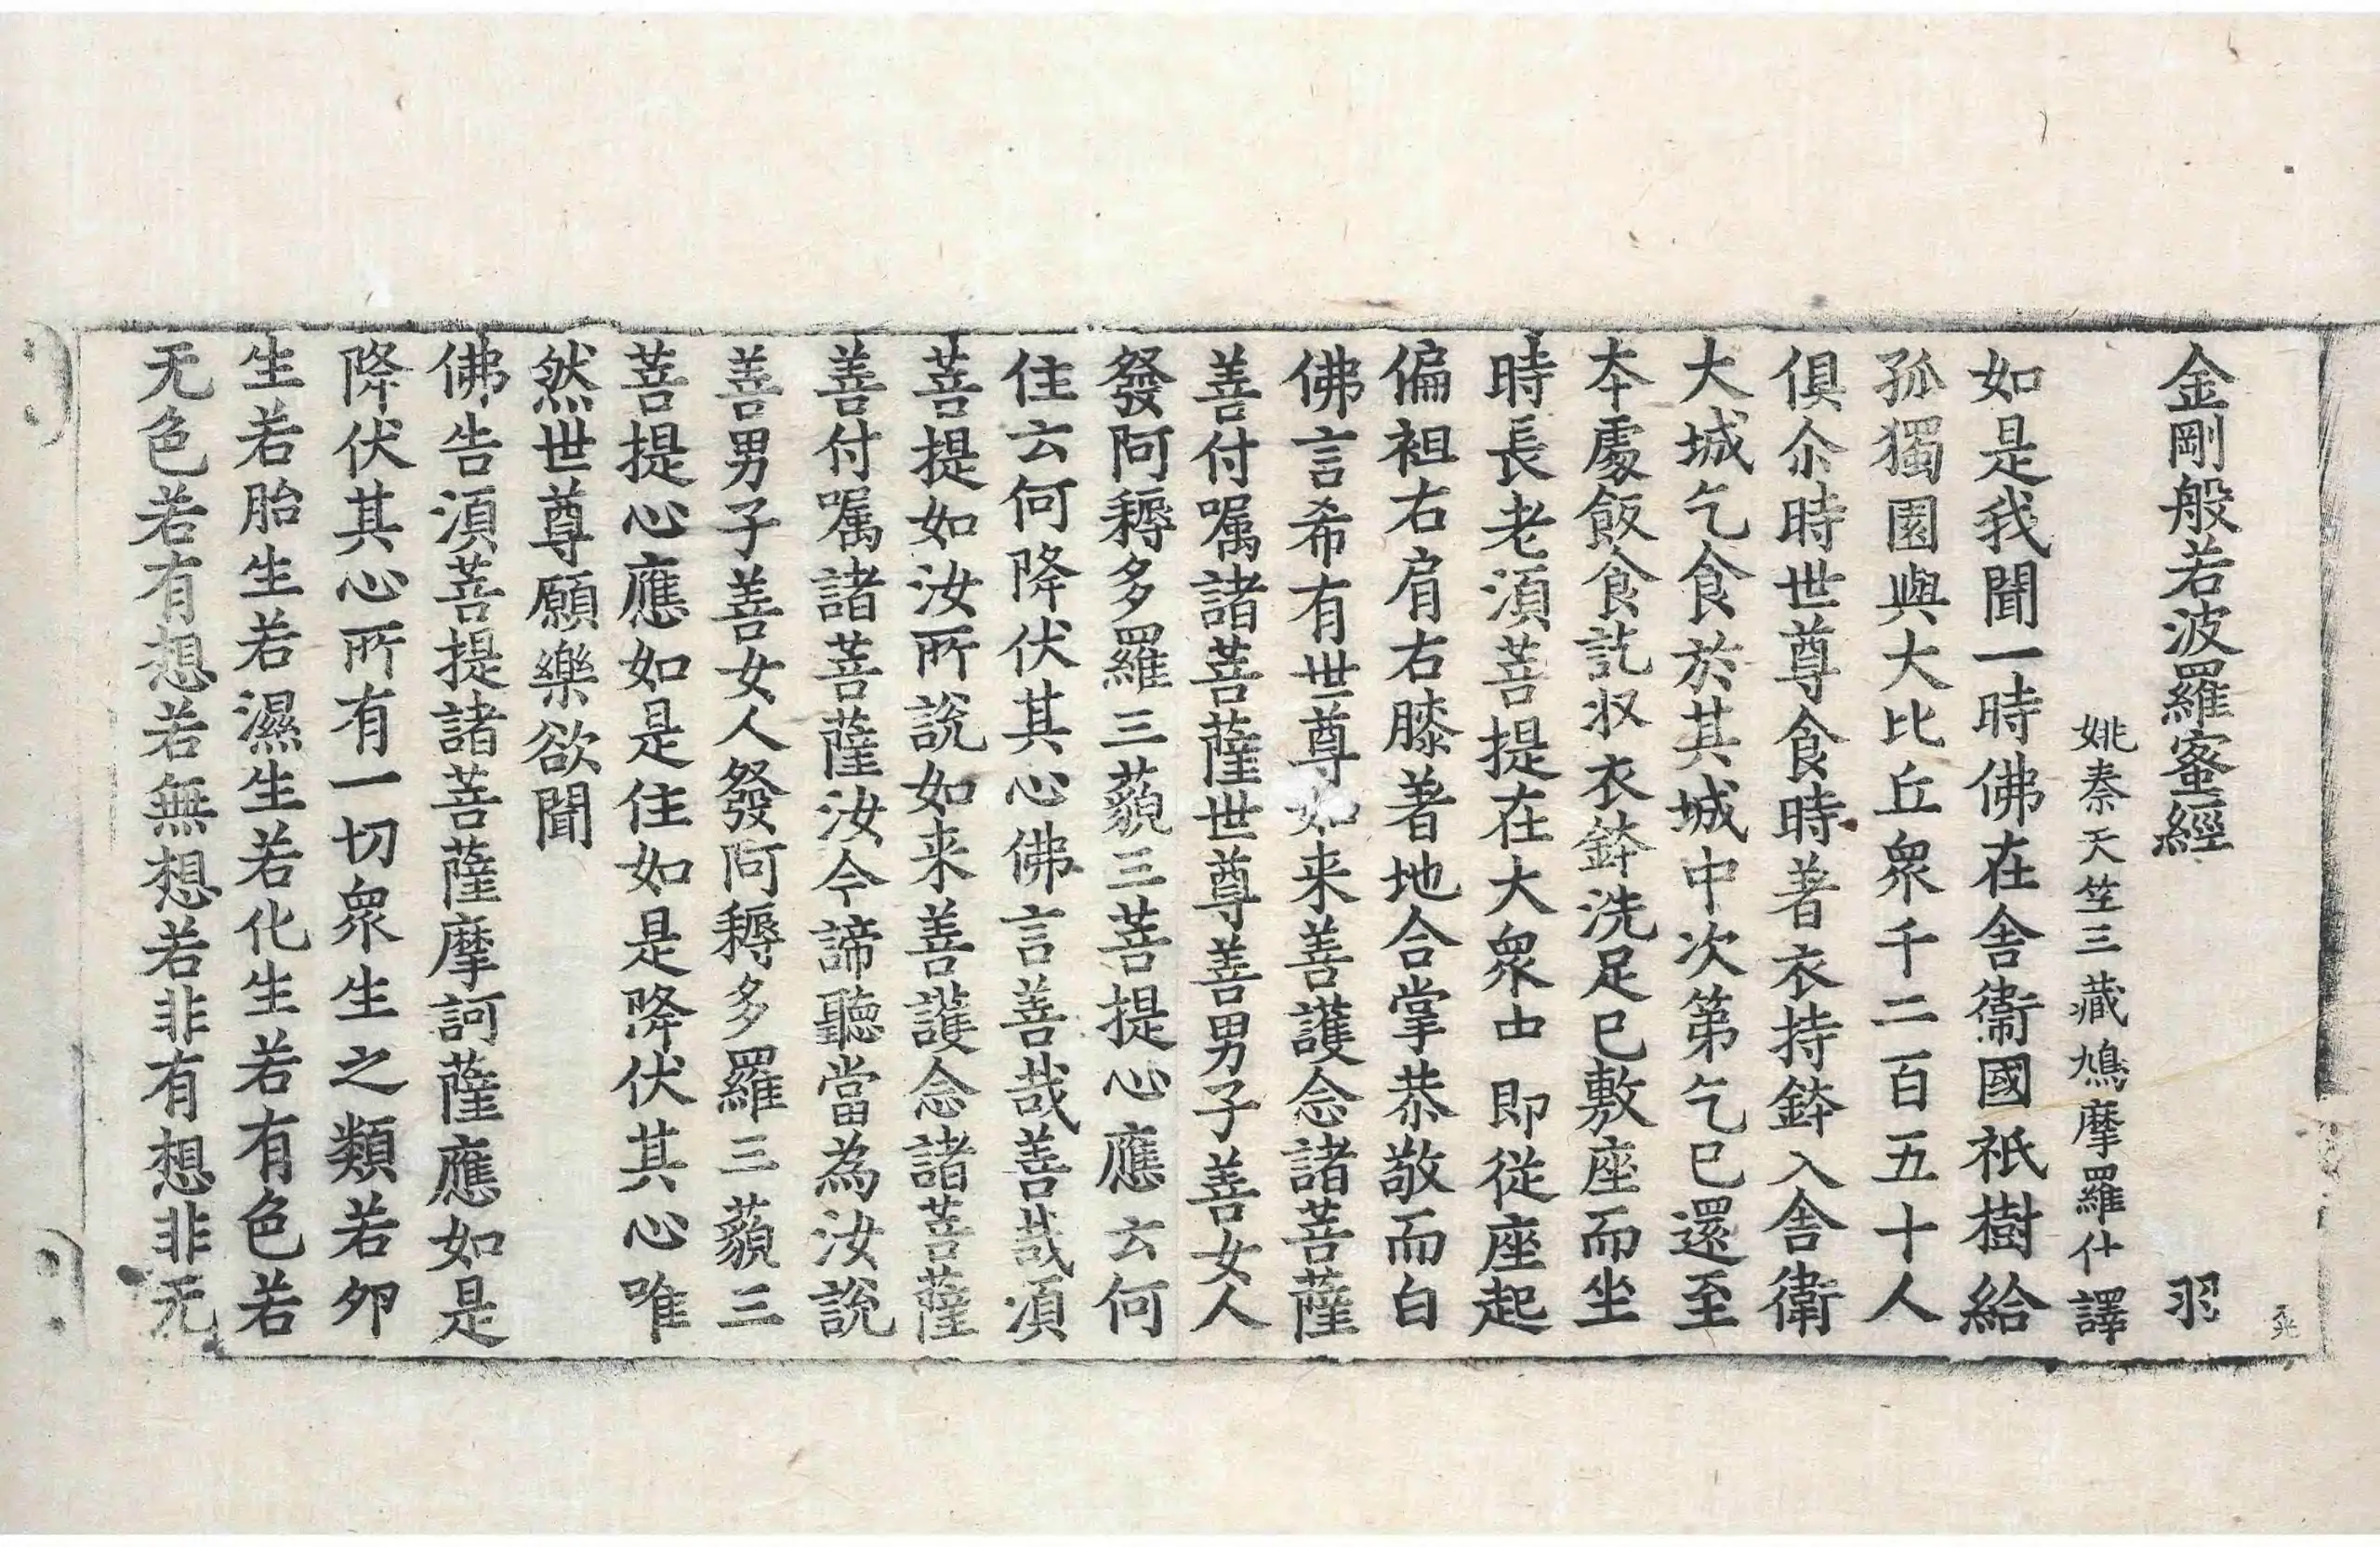 金剛般若波羅蜜經 羽
姚秦天竺三藏鳩摩羅什譯
如是我聞一時佛在舎衛國祇樹給
孤獨園與大比丘衆千二百五十人
俱尒時世尊食時著衣持鉢入舎衛
大城乞食於其城中次第乞已還至
本處飯食訖収衣鉢洗足已敷座而坐
時長老湏菩提在大衆中即從座起
偏袒右肩右膝著地合掌恭敬而白
佛言希有世尊如来善護念諸菩薩
善付嘱諸菩薩世尊善男子善女人
發阿耨多羅三藐三菩提心應云何
住云何降伏其心佛言善哉善哉湏
菩提如汝所說如来善護念諸菩薩
善付嘱諸菩薩汝今諦聽當為汝說
善男子善女人發阿耨多羅三藐三
菩提心應如是住如是降伏其心唯
然世尊願樂欲聞
佛告湏菩提諸菩薩摩訶薩應如是
降伏其心所有一切衆生之類若卵
生若胎生若濕生若化生若有色若
无色若有想若無想若非有想非无